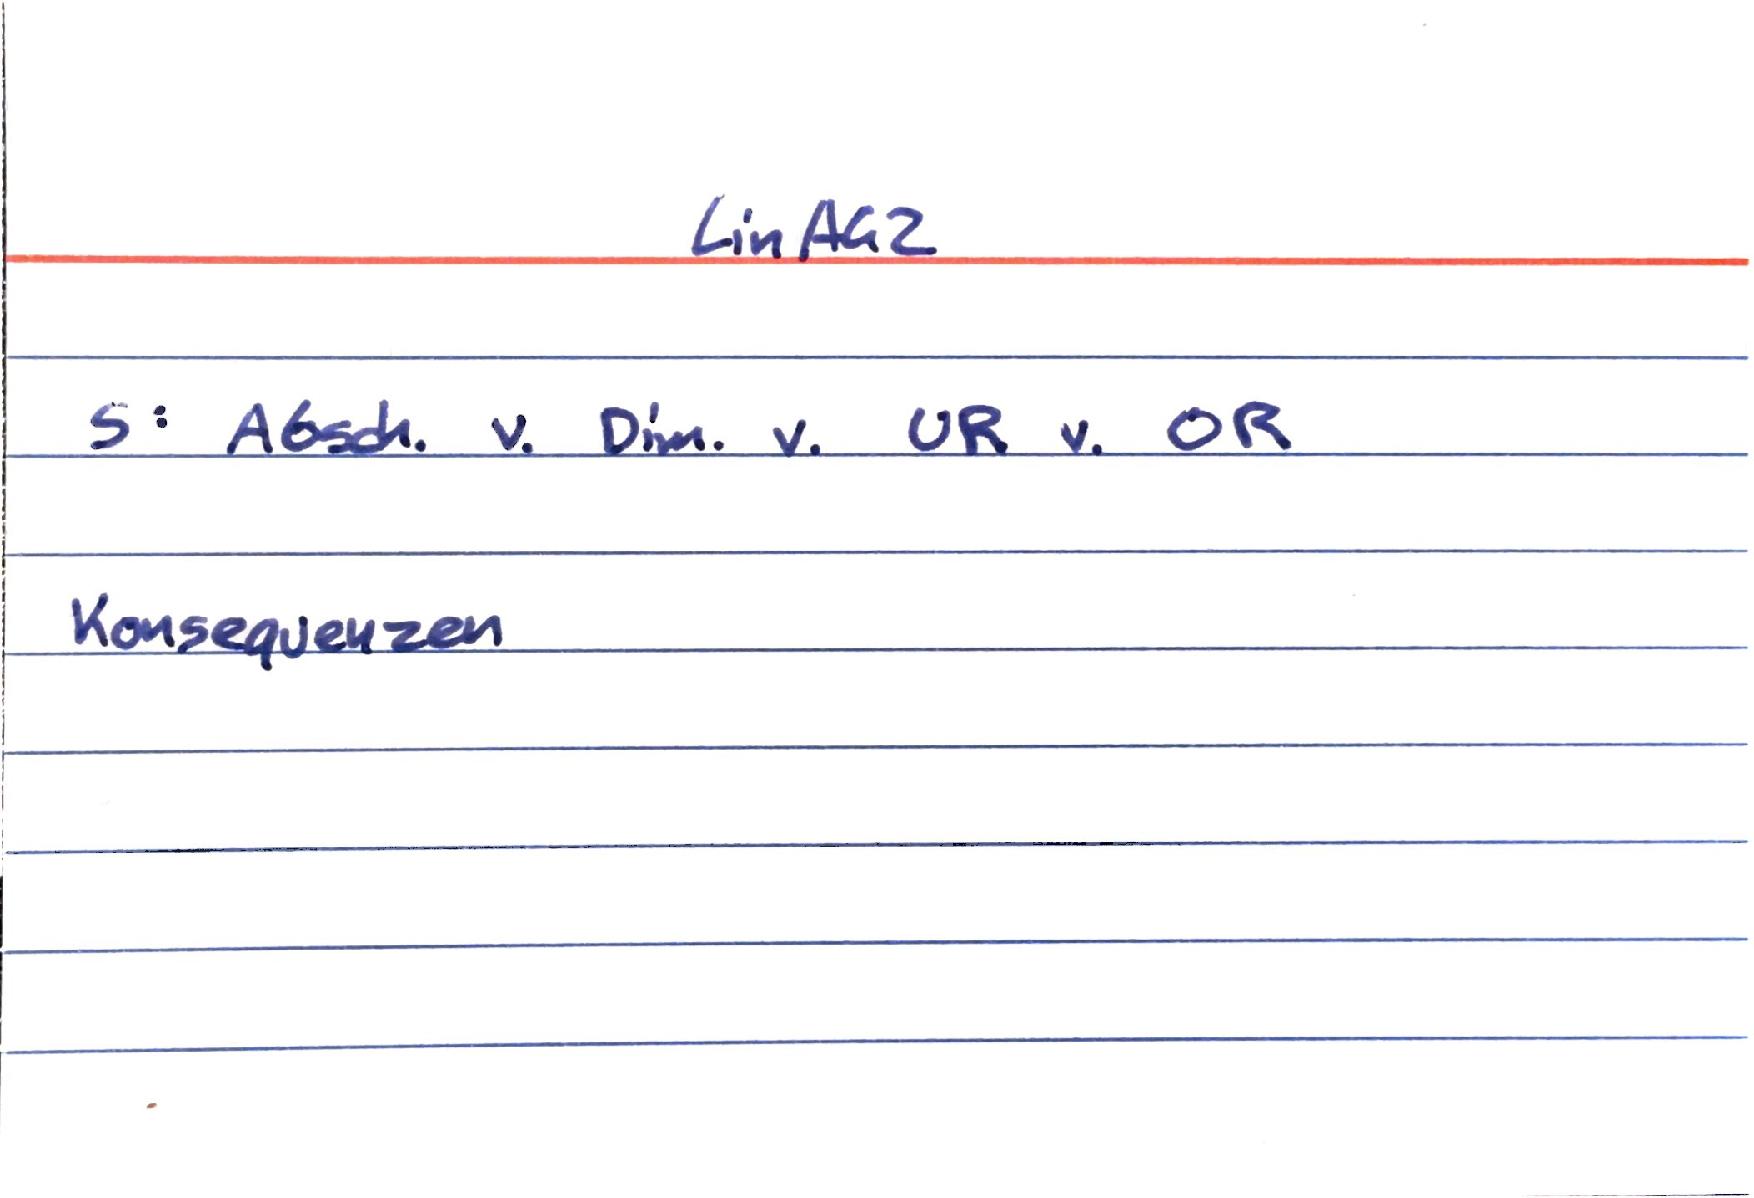 LinAG2
S: Absch. v. Dim. v. UR v. OR
Konsequenzen